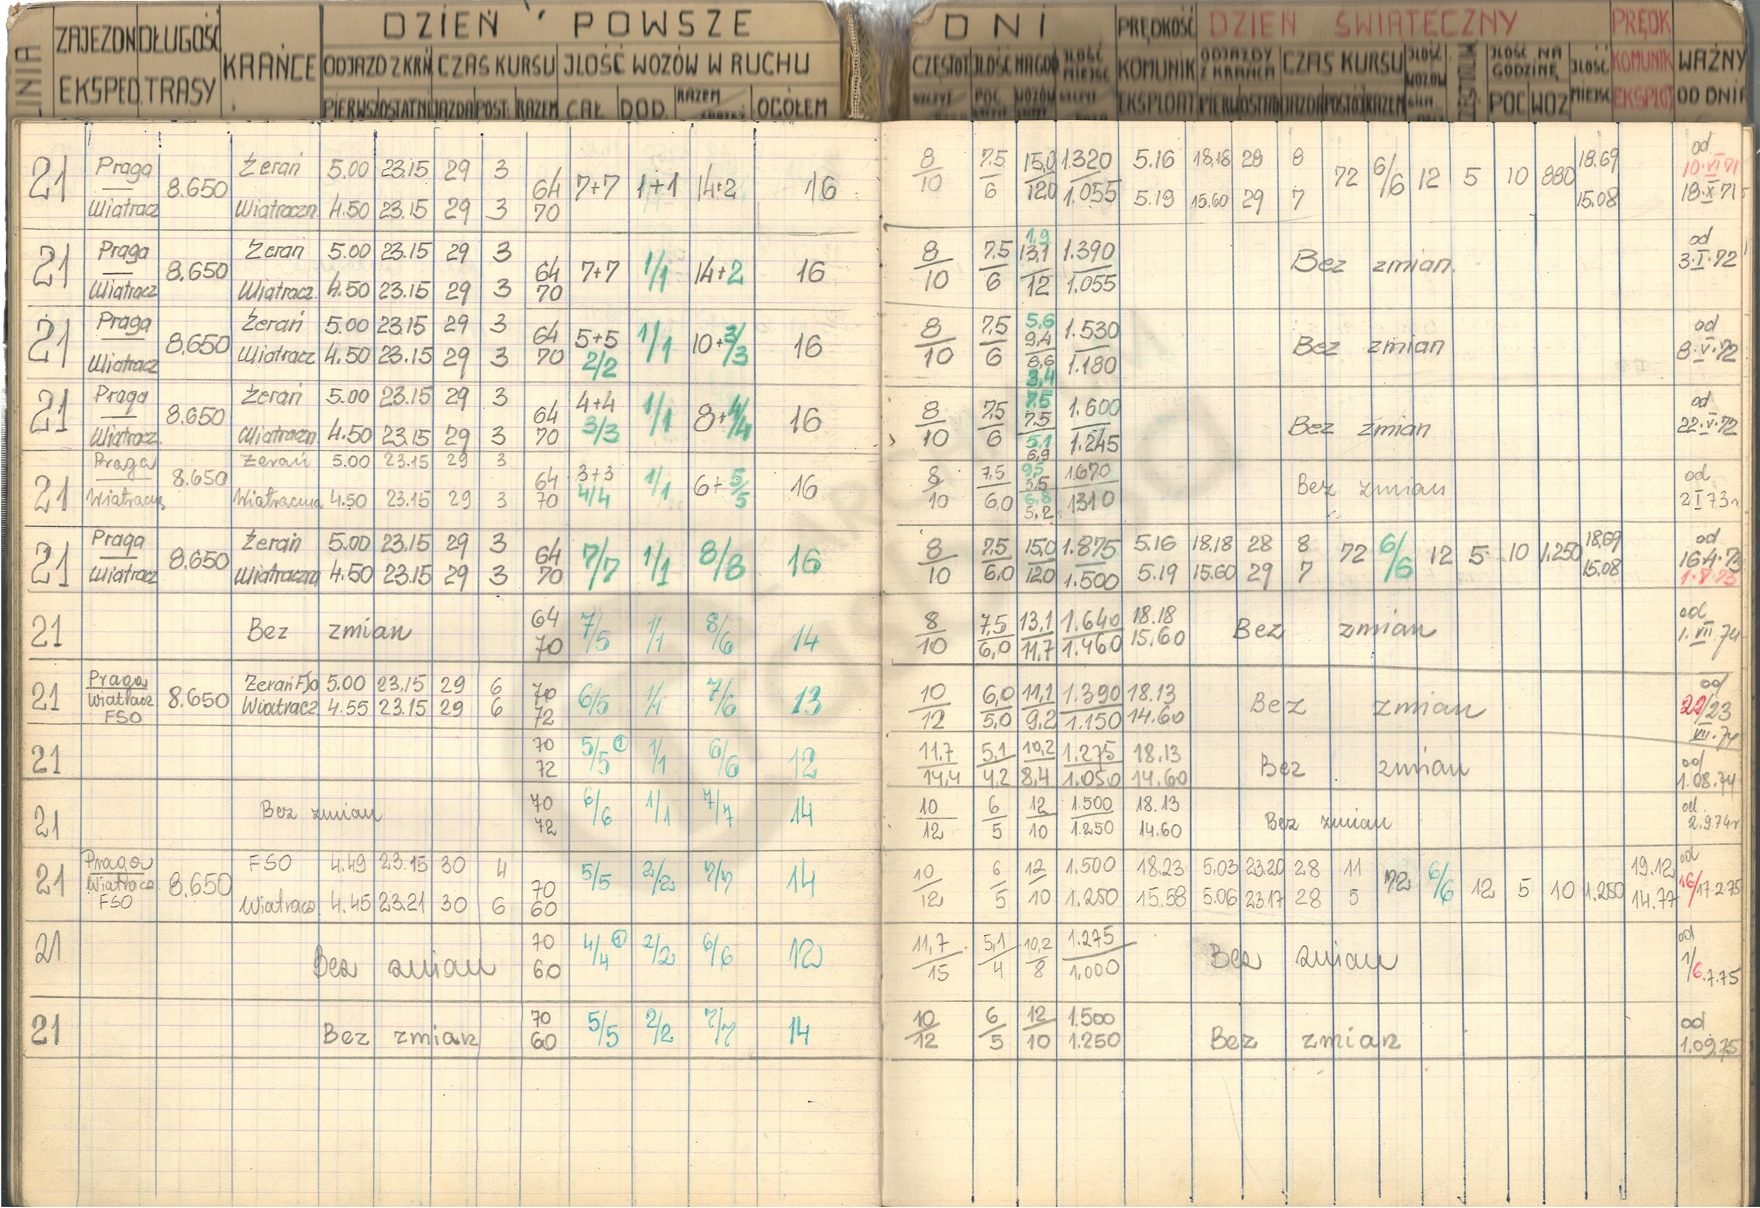 DZIEŃ POWSZE DNI PRĘDKOŚĆ DZIEŃ ŚWIĄTECZNY PRĘDK
ZAJEZDN DŁUGOŚĆ KRAŃCE ODJAZD Z KRŃ CZAS KURSU JLOŚĆ WOZÓW W RUCHU KOMUNIK CZAS KURSU KOMUNIK WAŻNY
EKSPED. TRASY PIERWS OSTATNI JAZDA POST. RAZEM CAŁ. DOD. RAZEM OGÓŁEM EKSPLOAT POC WOZ OD DNIA
21 Praga 8.650 Żerań 5.00 23.15 29 3 64 7+7 1+1 14+2 16 8/10 7,5/6 15,0/12,0 1.320/1.055 5.16 18,18 29 8 72 6/6 12 5 10 880 18.69 od 10.VI 71
Wiatracz Wiatraczn 4.50 23.15 29 3 70 5.19 15.60 29 7 15.08 18.X 71
21 Praga 8.650 Żerań 5.00 23.15 29 3 64 7+7 1/1 14+2 16 8/10 7,5/6 1,9 13,1/12 1.390/1.055 Bez zmian od
Wiatracz 4.50 23.15 29 3 70 3.I.72
21 Praga 8.650 Żerań 5.00 23.15 29 3 64 5+5 1/1 10+3/3 16 8/10 7,5/6 5,6 9,4/8,6 3,4 1.530/1.180 Bez zmian od
Wiatracz Wiatracz 4.50 23.15 29 3 70 2/2 8.V.72
21 Praga 8.650 Żerań 5.00 23.15 29 3 64 4+4 1/1 8+4/4 16 8/10 7,5/6 7,5 7,5/5,1 6,9 1.600/1.245 Bez zmian od
Wiatracz Wiatraczn 4.50 23.15 29 3 70 3/3 22.V.72
21 Praga 8.650 Żerań 5.00 23.15 29 3 64 3+3 1/1 6+5/5 16 8/10 7,5/6,0 9,5 5,5/6,8 5,2 1670/1310 Bez zmian od
Wiatraczna 4.50 23.15 29 3 70 4/4 2 I 73r
21 Praga 8.650 Żerań 5.00 23.15 29 3 64 7/7 1/1 8/8 16 8/10 7,5/6,0 15,0/12,0 1.875/1.500 5.16 18,18 28 8 72 6/6 12 5 10 1.250 18.69 od
Wiatracz Wiatraczna 4.50 23.15 29 3 70 5.19 15.60 29 7 15.08 16.4.73
21 Bez zmian 64/70 7/5 1/1 8/6 14 8/10 7,5/6,0 13,1/11,7 1.640/1.460 18.18 15,60 Bez zmian od 1.VII.74
21 Praga 8.650 Żerań FSO 5.00 23.15 29 6 70 6/5 1/1 7/6 13 10/12 6,0/5,0 11,1/9,2 1.390/1.150 18.13 14.60 Bez zmian od
Wiatracz Wiatracz 4.55 23.15 29 6 72 22/23
FSO VII.74
21 70/72 5/5 ① 1/1 6/6 12 11,7/14,4 5,1/4,2 10,2/8,4 1.275/1.050 18.13 14.60 Bez zmian od 1.08.74
21 Bez zmian 70/72 6/6 1/1 7/7 14 10/12 6/5 12/10 1.500/1.250 18.13 14.60 Bez zmian od 2.9.74r
21 Praga 8.650 FSO 4.49 23.15 30 4 70 5/5 2/2 7/7 14 10/12 6/5 12/10 1.500/1.250 18.23 5.03 23.20 28 11 72 6/6 12 5 10 1.250 19.12 od
Wiatracz Wiatracz 4.45 23.21 30 6 60 15.58 5.06 23.17 28 5 14.77 16/17.2.75
FSO
21 Bez zmian 70/60 4/4 ① 2/2 6/6 12 11,7/15 5,1/4 10,2/8 1.275/1.000 Bez zmian od 1/6.7.75
21 Bez zmian 70/60 5/5 2/2 7/7 14 10/12 6/5 12/10 1.500/1.250 Bez zmian od 1.09.75